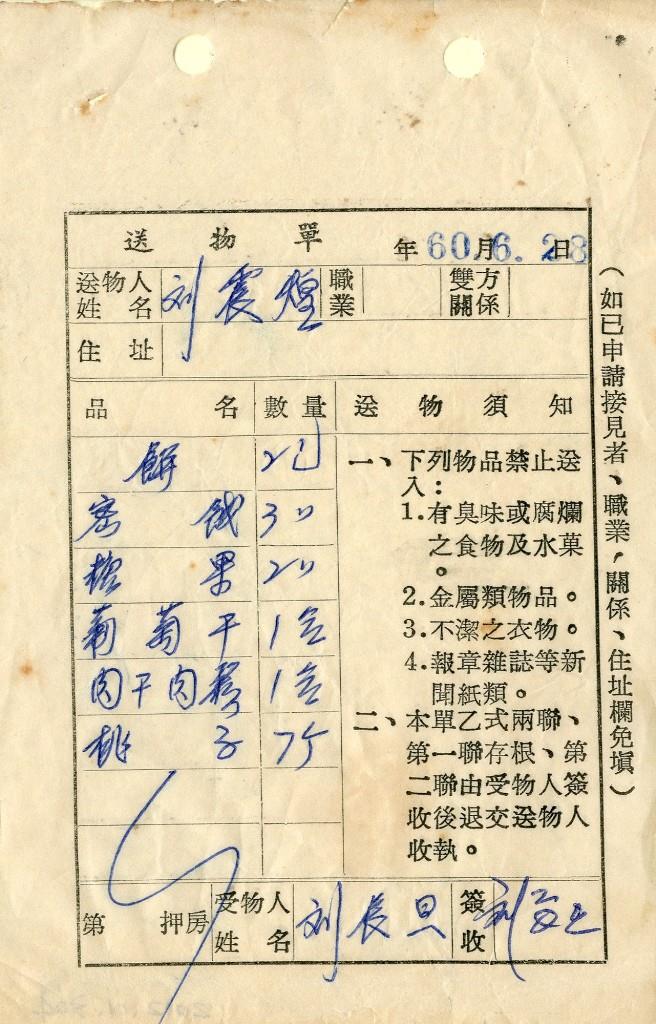 送物單
年60.月6.28日
送物人姓名 刘震煌 職業 雙方關係
住址
品名 數量 送物須知
餅 2包
密餞 3〃
糖果 2〃
葡萄干 1盒
肉干肉鬆 1盒
桃子 7个
一、下列物品禁止送
入:
1.有臭味或腐爛
之食物及水菓
。
2.金屬類物品。
3.不潔之衣物。
4.報章雜誌等新
聞紙類。
二、本單乙式兩聯、
第一聯存根、第
二聯由受物人簽
收後退交送物人
收執。
第 押房 受物人姓名 刘長旦 簽收
(如已申請接見者、職業,關係、住址欄免填)